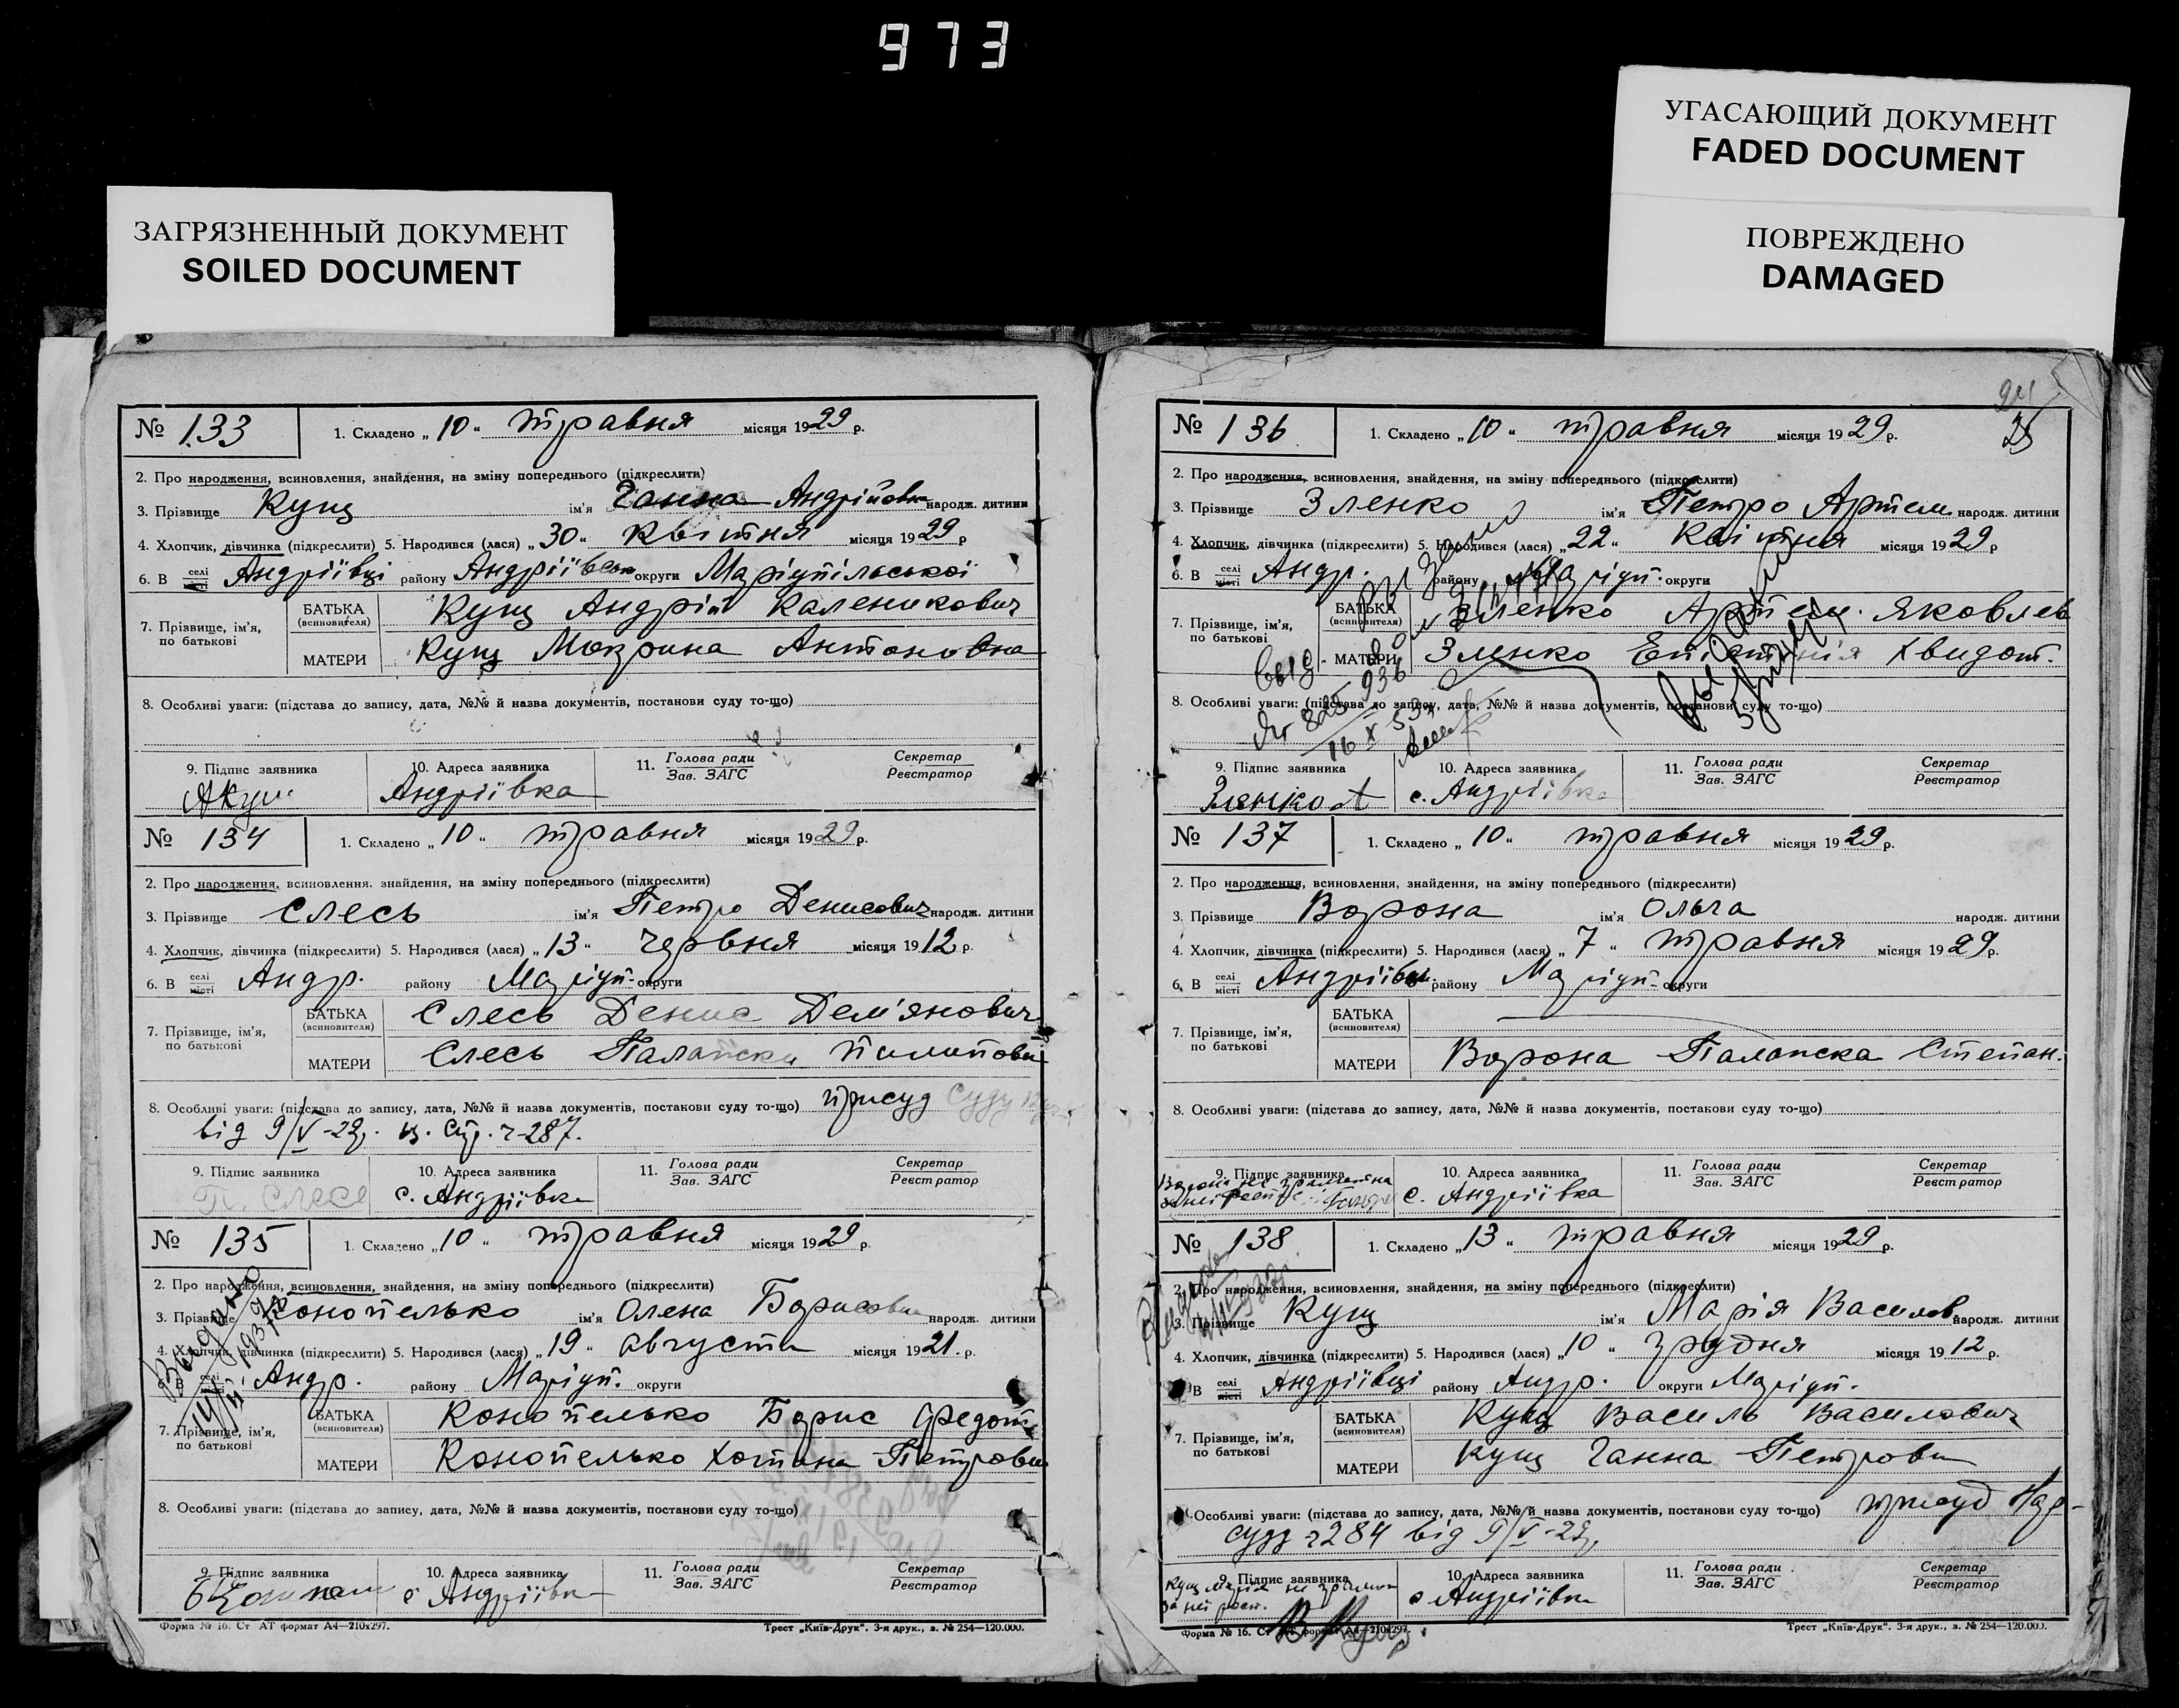 973
УГАСАЮЩИЙ ДОКУМЕНТ
FADED DOCUMENT
ПОВРЕЖДЕНО
DAMAGED
ЗАГРЯЗНЕННЫЙ ДОКУМЕНТ
SOILED DOCUMENT
№ 133
1. Складено „ 10 “ травня місяця 1929 р.
2. Про народження, всиновлення, знайдення, на зміну попереднього (підкреслити)
3. Прізвище Кущ ім'я Ганна Андрійовна народж. дитини
4. Хлопчик, дівчинка (підкреслити) 5. Народився (лася) „ 30 “ квітня місяця 1929 р
6. В селі місті Андріївці району Андріївськ округи Маріупільської
7. Прізвище, ім'я, по батькові
БАТЬКА (всиновителя) Кущ Андрій Каленикович
МАТЕРИ Кущ Мокрина Антоновна
8. Особливі уваги: (підстава до запису, дата, №№ й назва документів, постанови суду то-що)
9. Підпис заявника
10. Адреса заявника Андріївка
11. Голова ради Зав. ЗАГС
Секретар Реєстратор
№ 134
1. Складено „ 10 “ травня місяця 1929 р.
2. Про народження, всиновлення, знайдення, на зміну попереднього (підкреслити)
3. Прізвище Слесь ім'я Петро Денисович народж. дитини
4. Хлопчик, дівчинка (підкреслити) 5. Народився (лася) „ 13 “ червня місяця 1912 р.
6. В селі місті Андр. району Маріуп. округи
7. Прізвище, ім'я, по батькові
БАТЬКА (всиновителя) Слесь Денис Дем'янович
МАТЕРИ Слесь Палажка
8. Особливі уваги: (підстава до запису, дата, №№ й назва документів, постанови суду то-що) присуд суду
від 9/V-29р. ч-287.
9. Підпис заявника П. Слесь
10. Адреса заявника с. Андріївка
11. Голова ради Зав. ЗАГС
Секретар Реєстратор
№ 135
1. Складено „ 10 “ травня місяця 1929 р.
2. Про народження, всиновлення, знайдення, на зміну попереднього (підкреслити)
3. Прізвище Конопелько ім'я Олена Борисовна народж. дитини
4. Хлопчик, дівчинка (підкреслити) 5. Народився (лася) „ 19 “ августа місяця 1921 р.
6. В селі місті Андр. району Маріуп. округи
7. Прізвище, ім'я, по батькові
БАТЬКА (всиновителя) Конопелько Борис Федот
МАТЕРИ Конопелько Хотина Петровна
8. Особливі уваги: (підстава до запису, дата, №№ й назва документів, постанови суду то-що)
9. Підпис заявника
10. Адреса заявника с Андріївка
11. Голова ради Зав. ЗАГС
Секретар Реєстратор
Выдано
Форма № 16. Ст АТ формат А4—210x297.
Трест „Київ-Друк“. 3-я друк., з. № 254—120.000.
25
№ 136
1. Складено „ 10 “ травня місяця 1929 р.
2. Про народження, всиновлення, знайдення, на зміну попереднього (підкреслити)
3. Прізвище Зленко ім'я Петро Артем народж. дитини
4. Хлопчик, дівчинка (підкреслити) 5. Народився (лася) „ 22 “ квітня місяця 1929 р
6. В селі місті Андр. району Маріуп. округи
7. Прізвище, ім'я, по батькові
БАТЬКА (всиновителя) Зленко Артем. Яковлев
МАТЕРИ Зленко Хвидот.
8. Особливі уваги: (підстава до запису, дата, №№ й назва документів, постанови суду то-що)
9. Підпис заявника Зленко А
10. Адреса заявника с. Андріївка
11. Голова ради Зав. ЗАГС
Секретар Реєстратор
№ 137
1. Складено „ 10 “ травня місяця 1929 р.
2. Про народження, всиновлення, знайдення, на зміну попереднього (підкреслити)
3. Прізвище Ворона ім'я Ольга народж. дитини
4. Хлопчик, дівчинка (підкреслити) 5. Народився (лася) „ 7 “ травня місяця 1929 р.
6. В селі місті Андріївці району Маріуп. округи
7. Прізвище, ім'я, по батькові
БАТЬКА (всиновителя)
МАТЕРИ Ворона Палажка Степан.
8. Особливі уваги: (підстава до запису, дата, №№ й назва документів, постанови суду то-що)
9. Підпис заявника
10. Адреса заявника с. Андріївка
11. Голова ради Зав. ЗАГС
Секретар Реєстратор
№ 138
1. Складено „ 13 “ травня місяця 1929 р.
2. Про народження, всиновлення, знайдення, на зміну попереднього (підкреслити)
3. Прізвище Кущ ім'я Марія Василов. народж. дитини
4. Хлопчик, дівчинка (підкреслити) 5. Народився (лася) „ 10 “ грудня місяця 1912 р.
6. В селі місті Андріївці району Андр. округи Маріуп.
7. Прізвище, ім'я, по батькові
БАТЬКА (всиновителя) Кущ Василь Василович
МАТЕРИ Кущ Ганна Петровн
8. Особливі уваги: (підстава до запису, дата, №№ й назва документів, постанови суду то-що) присуд Нар-
суду ч284 від 9/V-29р.
9. Підпис заявника
10. Адреса заявника с Андріївка
11. Голова ради Зав. ЗАГС
Секретар Реєстратор
Форма № 16. Ст АТ формат А4—210x297.
Трест „Київ-Друк“. 3-я друк., з. № 254—120.000.